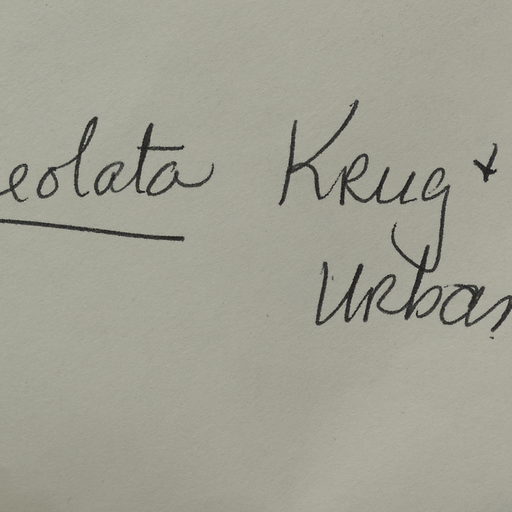 eolata Krug +
Urban